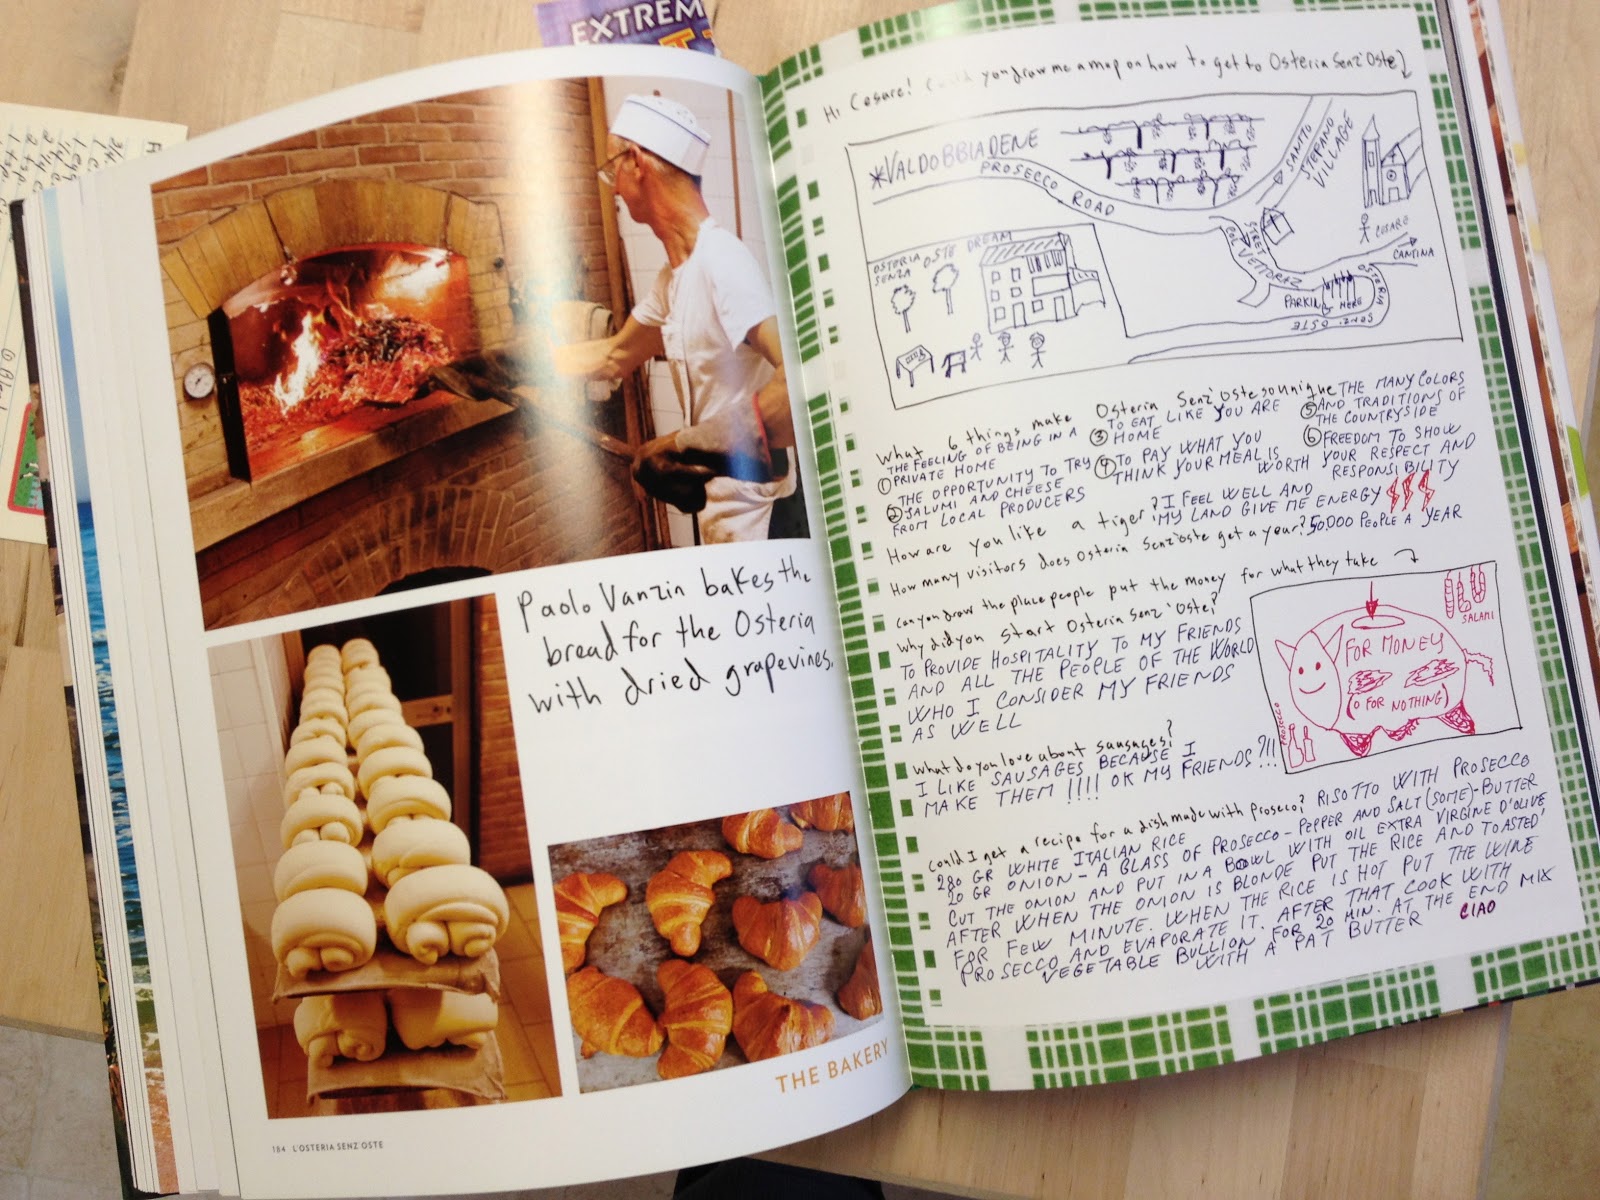 EXTREM
Paolo Vanzin bakes the
bread for the Osteria
with dried grapevines.
THE BAKERY
184 L'OSTERIA SENZ'OSTE
Hi Cesare! Could you draw me a map on how to get to Osteria Senz'Oste?
*VALDOBBIADENE
PROSECCO ROAD
SANTO
STEFANO
VILLAGE
CESARE
STREET
COL VETTORAZ
CANTINA
PARKING HERE
OSTERIA
SENZ' OSTE
OSTERIA
SENZA OSTE DREAM
What 6 things make Osteria Senz'Oste so unique
THE FEELING OF BEING IN A
① PRIVATE HOME
THE OPPORTUNITY TO TRY
② SALUMI AND CHEESE
FROM LOCAL PRODUCERS
TO EAT LIKE YOU ARE
③ HOME
④ TO PAY WHAT YOU
THINK YOUR MEAL IS
WORTH
THE MANY COLORS
⑤ AND TRADITIONS OF
THE COUNTRYSIDE
⑥ FREEDOM TO SHOW
YOUR RESPECT AND
RESPONSIBILITY
How are you like a tiger? I FEEL WELL AND
MY LAND GIVE ME ENERGY
How many visitors does Osteria Senz'oste get a year? 50.000 PEOPLE A YEAR
Can you draw the place people put the money for what they take
Why did you start Osteria Senz'Oste?
TO PROVIDE HOSPITALITY TO MY FRIENDS
AND ALL THE PEOPLE OF THE WORLD
WHO I CONSIDER MY FRIENDS
AS WELL
SALAMI
FOR MONEY
(O FOR NOTHING)
PROSECCO
What do you love about sausages?
I LIKE SAUSAGES BECAUSE I
MAKE THEM !!!! OK MY FRIENDS?!!
Could I get a recipe for a dish made with prosecco? RISOTTO WITH PROSECCO
280 GR WHITE ITALIAN RICE
20 GR ONION - A GLASS OF PROSECCO - PEPPER AND SALT (SOME) - BUTTER
CUT THE ONION AND PUT IN A BOWL WITH OIL EXTRA VIRGINE D'OLIVE
AFTER WHEN THE ONION IS BLONDE PUT THE RICE AND TOASTED
FOR FEW MINUTE. WHEN THE RICE IS HOT PUT THE WINE
PROSECCO AND EVAPORATE IT. AFTER THAT COOK WITH
VEGETABLE BULLION FOR 20 MIN. AT THE END MIX
WITH A PAT BUTTER CIAO